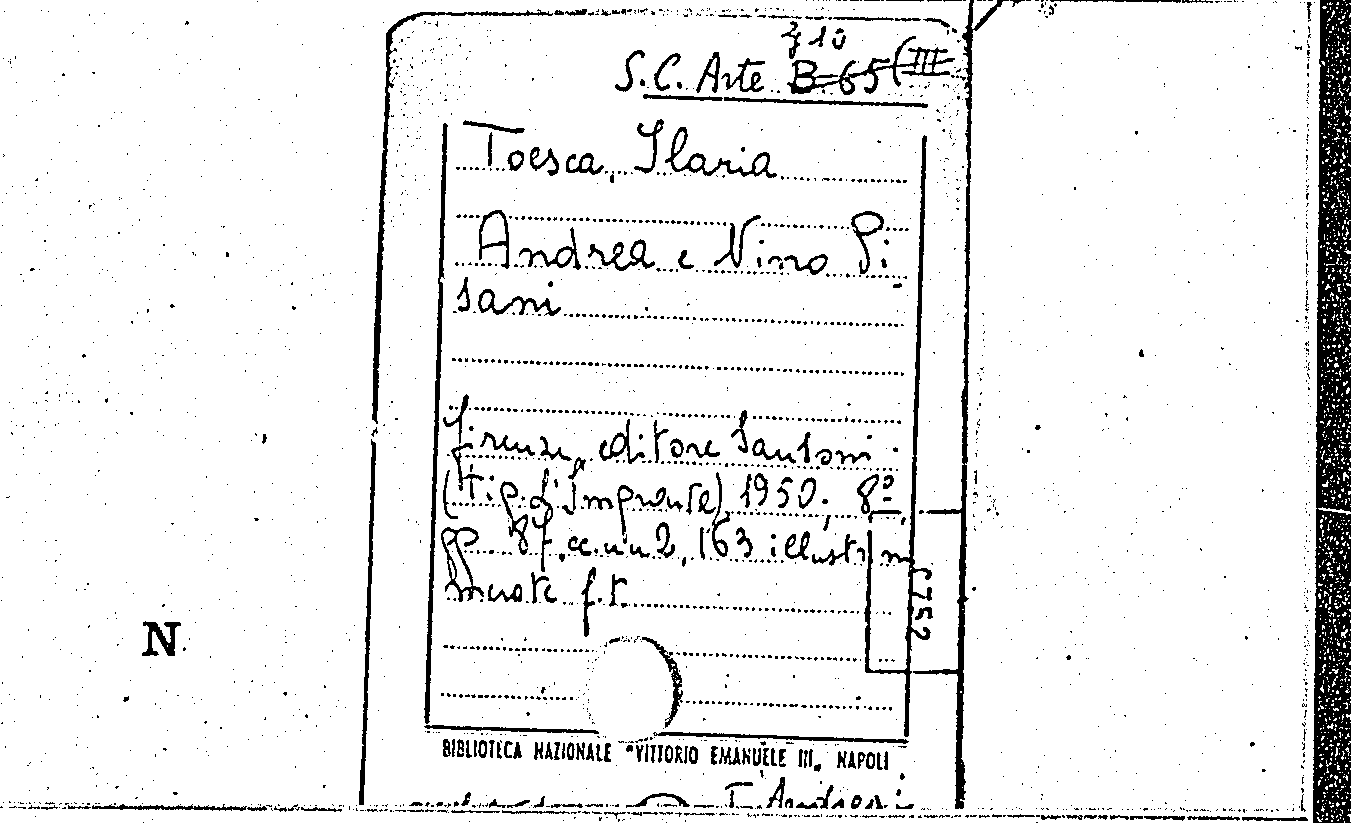 g 10
S.C. Arte B 65 (III
Toesca, Ilaria
Andrea e Nino Pi-
sani
Firenze, editore Sansoni
(Tip. L'Impronta) 1950. 8º
pp. 87, cc.nn 2, 163 illustr. nu
merate f.t.
C752
N
BIBLIOTECA NAZIONALE "VITTORIO EMANUELE III„ NAPOLI